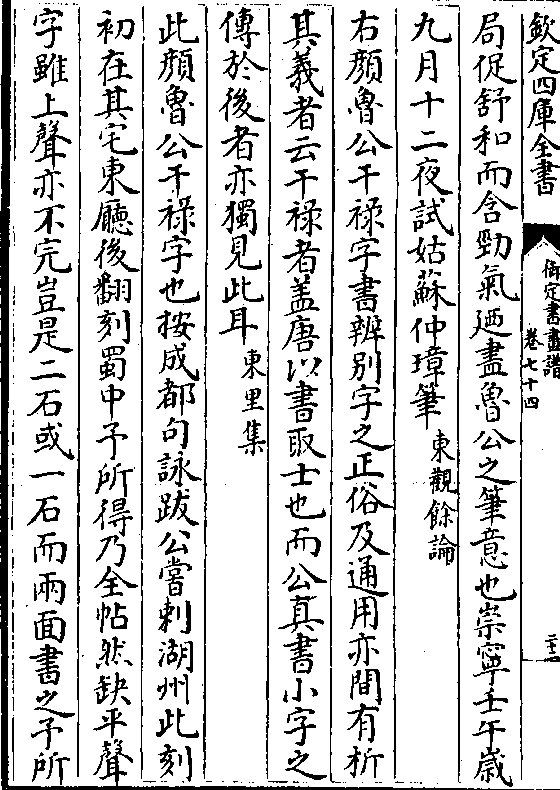 欽定四庫全書
御定書畫譜
卷七十四
三十二
局促舒和而含勁氣廼盡魯公之筆意也崇寧壬午歲
九月十二夜試姑蘇仲璋筆東觀餘論
右顔魯公干祿字書辨别字之正俗及通用亦間有析
其義者云干祿者盖唐以書取士也而公真書小字之
傳於後者亦獨見此耳東里集
此顔魯公干祿字也按成都句詠跋公嘗刺湖州此刻
初在其宅東廳後翻刻蜀中予所得乃全帖然缺平聲
字雖上聲亦不完豈是二石或一石而兩面書之予所